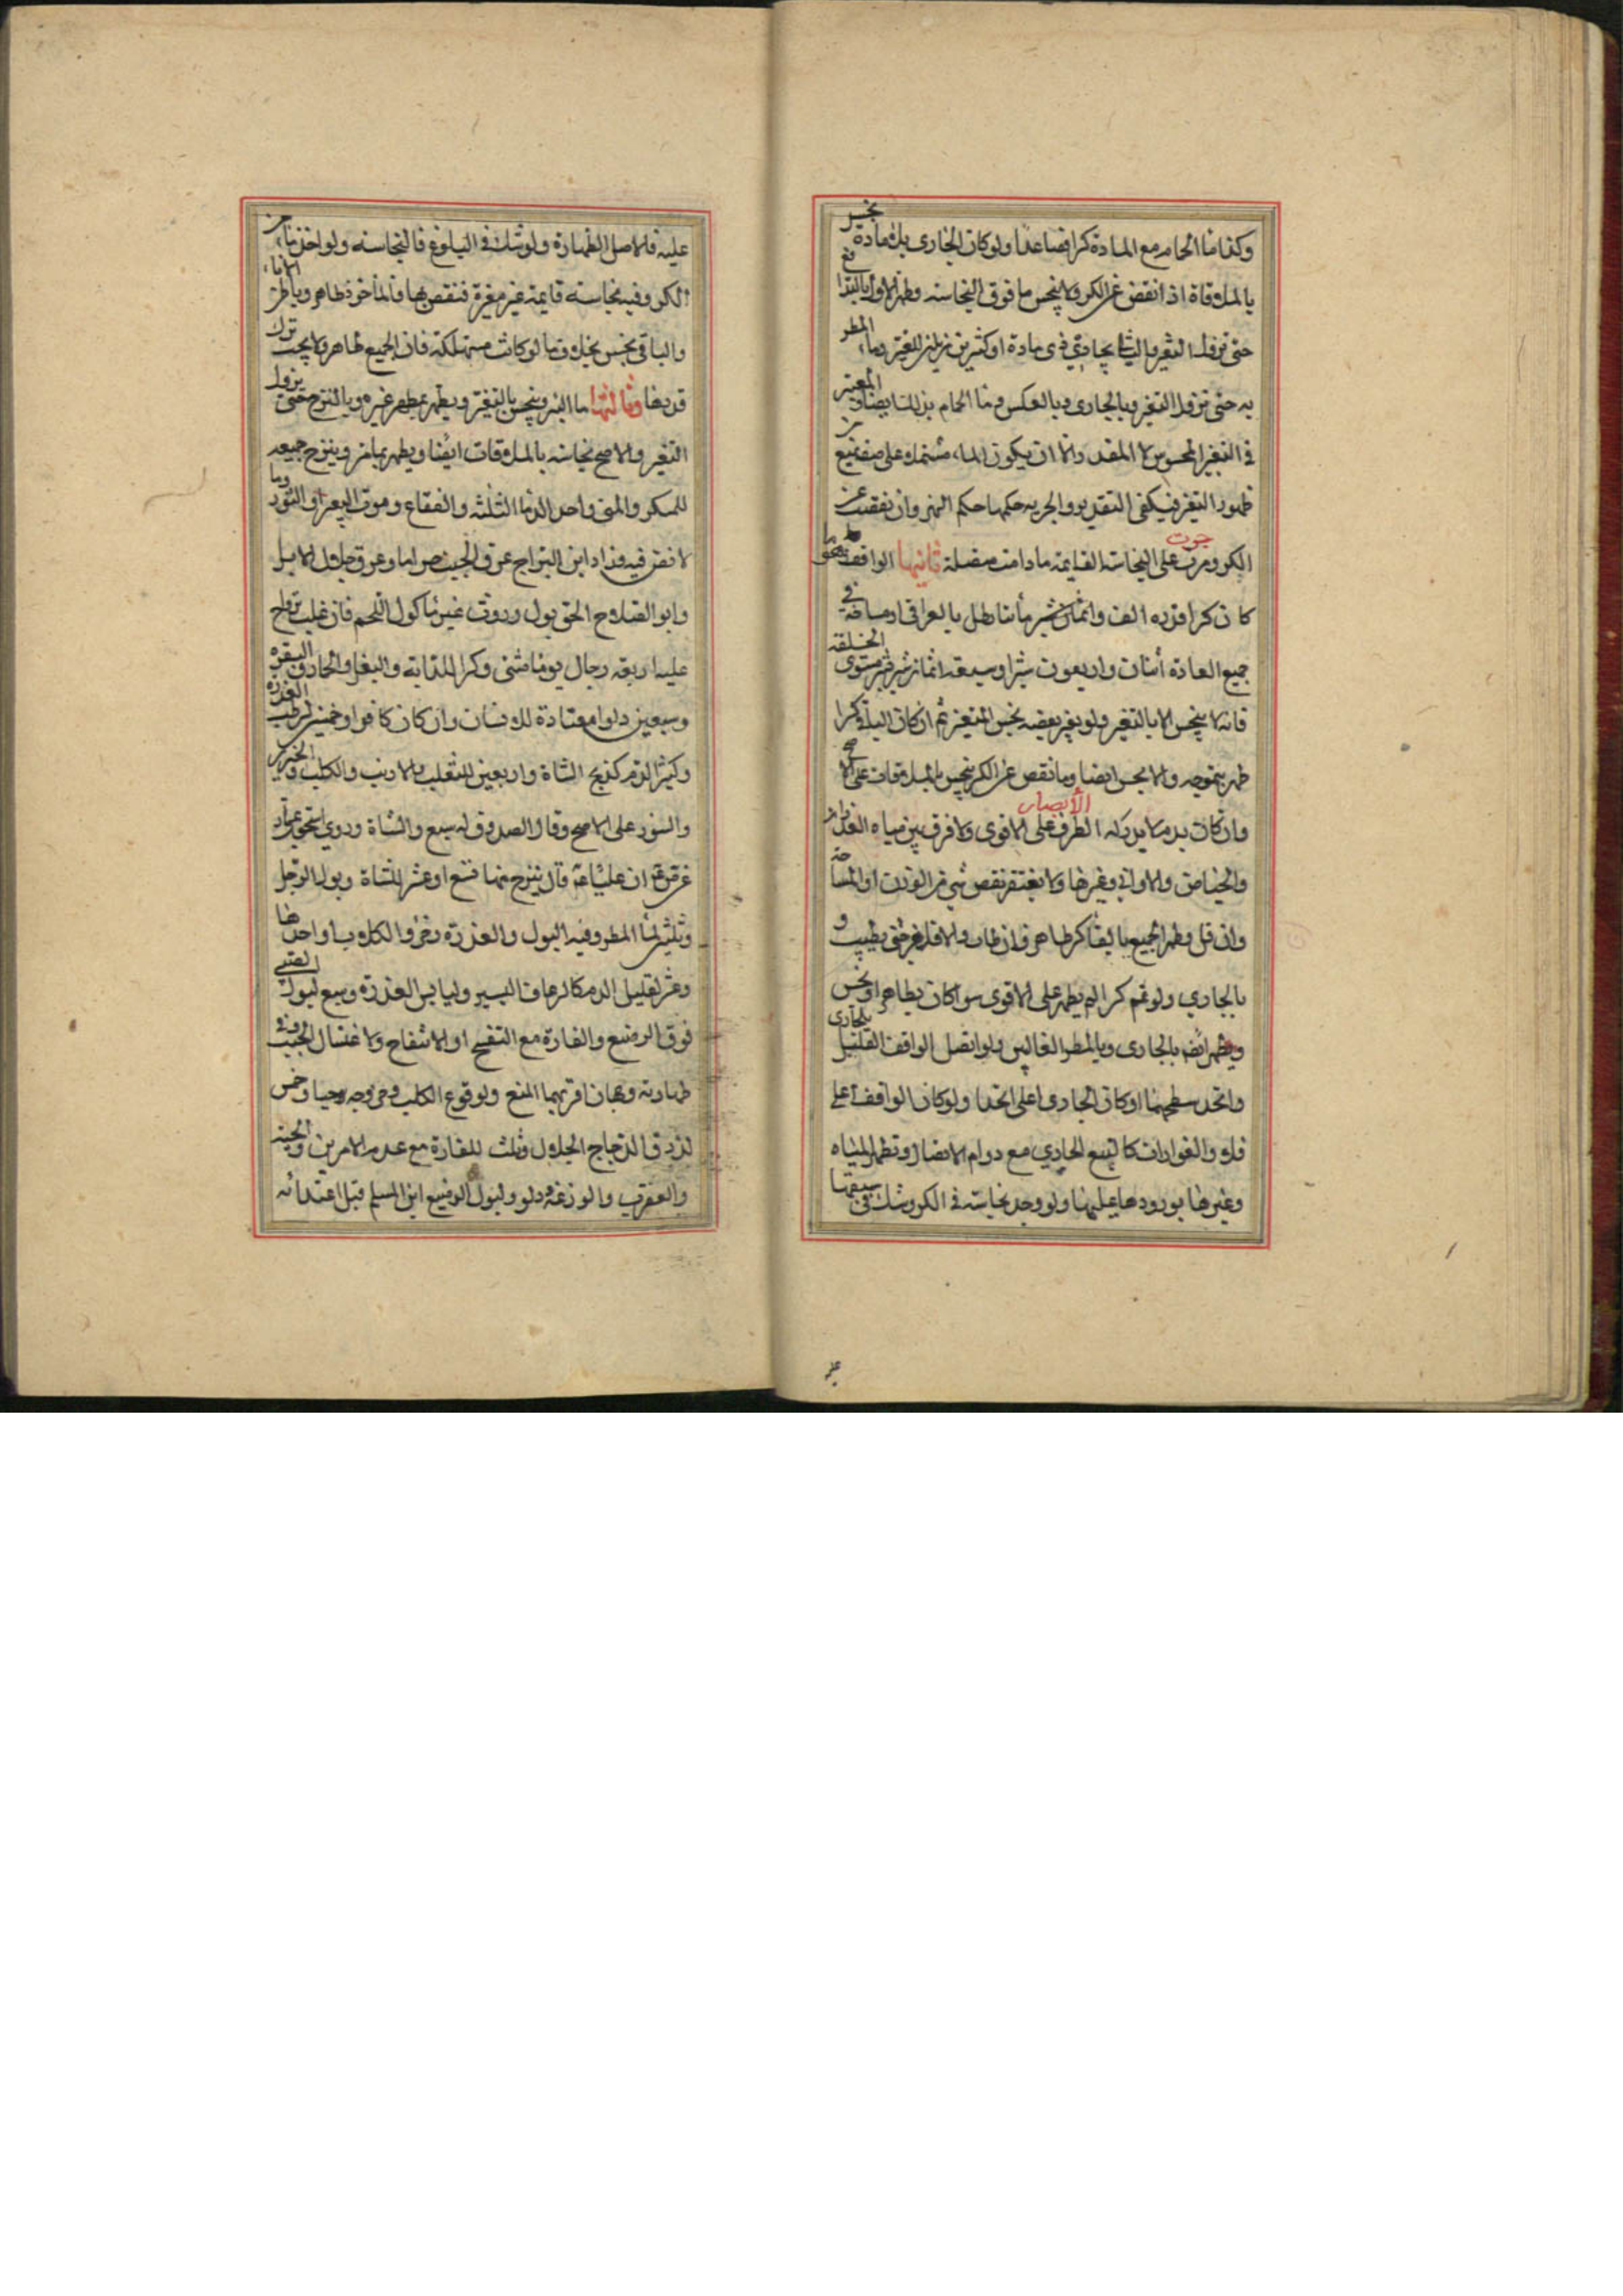 وكذا ماء الحمام مع المادة كرا فصاعدا ولو كان الجاري بلا مادة نجس
بالملاقاة اذا نقص عن الكر ولا ينجس ما فوق النجاسة وطهر الاول بالتدافع
حتى يزول التغير والثاني بجاري ذي مادة او كثير يمزيل للتغير وماء المطر
به حتى تزول التغير وبالجاري وبالعكس وماء الحمام بذلك ايضا والمعتبر
في التغير المحسوس لا المقدر والا ان يكون الماء مشتملا على صفة تمنع من
ظهور التغير فيكفي التقدير والجرية حكمها حكم النهر وان نقصت عن
الكر ومرت جرت على النجاسة القائمة ما دامت متصلة ثانيها الواقف وهو ما
كان كرا قدره الف ومائتا رطل بالعراقي او مسافة في
جميع العادة اثنان واربعون شبرا وسبعة اثمان شبر بشبر مستوى الخلقة
فانه لا ينجس الا بالتغير ولو تغير بعضه نجس المتغير ثم ان كان الباقي كرا
طهر بتموجه والا نجس ايضا وما نقص عن الكر ينجس بالملاقاة على الاصح
وان كانت بدم لا يدركه الطرف الأبصار على الاقوى ولا فرق بين مياه الغدران
والحياض والاواني وغيرها ولا يغتفر نقص شيء من الوزن او المساحة
وان قل وطهر الجميع بالقاء كر طاهر فان طاب والا فاخر حتى يطيب و
بالجاري ولو تمم كرا لم يطهر على الاقوى سواء كان بطاهر او نجس
ويطهر ايضا بالجاري وبالمطر الغالبين ولو اتصل الواقف القليل بالجاري
واتحد سطحهما او كان الجاري اعلى اتحدا ولو كان الواقف اعلى
فلا والفوارات كالنبع الجاري مع دوام الاتصال وتطهر المياه
وغيرها بورودها عليها ولو وجد نجاسة في الكر وشك في سبقها
عليه
عليه فالاصل الطهارة ولو شك في البلوغ فالنجاسة ولو اخذ ماء من
الكر وفيه نجاسة قائمة غير مغيرة فنقص بها فالمأخوذ طاهر وباطن الاناء
والباقي نجس بخلاف ما لو كانت مستهلكة فان الجميع طاهر ولا يجب ترك
قدرها وثالثها ماء البئر وينجس بالتغير ويطهر بمطهر غيره وبالنزح حتى يزول
التغير والاصح نجاسته بالملاقات ايضا ويطهر بما مر وبنزح جميعه
للمسكر والمني واحد الدماء الثلثة والفقاع وموت البعير او الثور وما
لا نص فيه وزاد ابن البراج عرق الجنب حراما وعرق جلال الابل
وابو الصلاح الحق بول وروث غير ماكول اللحم فان غلب تراوح
عليه اربعة رجال يوما مثنى وكرا للدابة والبغل والحمار والبقرة
وسبعين دلوا معتادة للانسان وان كان كافرا وخمسين لرطب العذرة
وكثير الدم كذبح الشاة واربعين للثعلب والارنب والكلب والخنزير
والسنور على الاصح وقال الصدوق له سبع والشاة وروى اسحق بن عمار
عن ان عليا قال ينزح منها تسع او عشر للشاة وبول الرجل
وثلثين لماء المطر وفيه البول والعذرة وخرؤ الكلاب او احدها
وعشر لقليل الدم كالرعاف اليسير وليابس العذرة وسبع لبول الصبي
فوق الرضيع والفارة مع التفسخ او الانتفاخ ولاغتسال الجنب وفي
طهارته وجهان اقربهما المنع ولوقوع الكلب وخروجه حيا وخمس
لذرق الدجاج الجلال وثلث للفارة مع عدم الامرين والحية
والعقرب والوزغة ودلو ولبول الرضيع ابن المسلم قبل اغتذائه